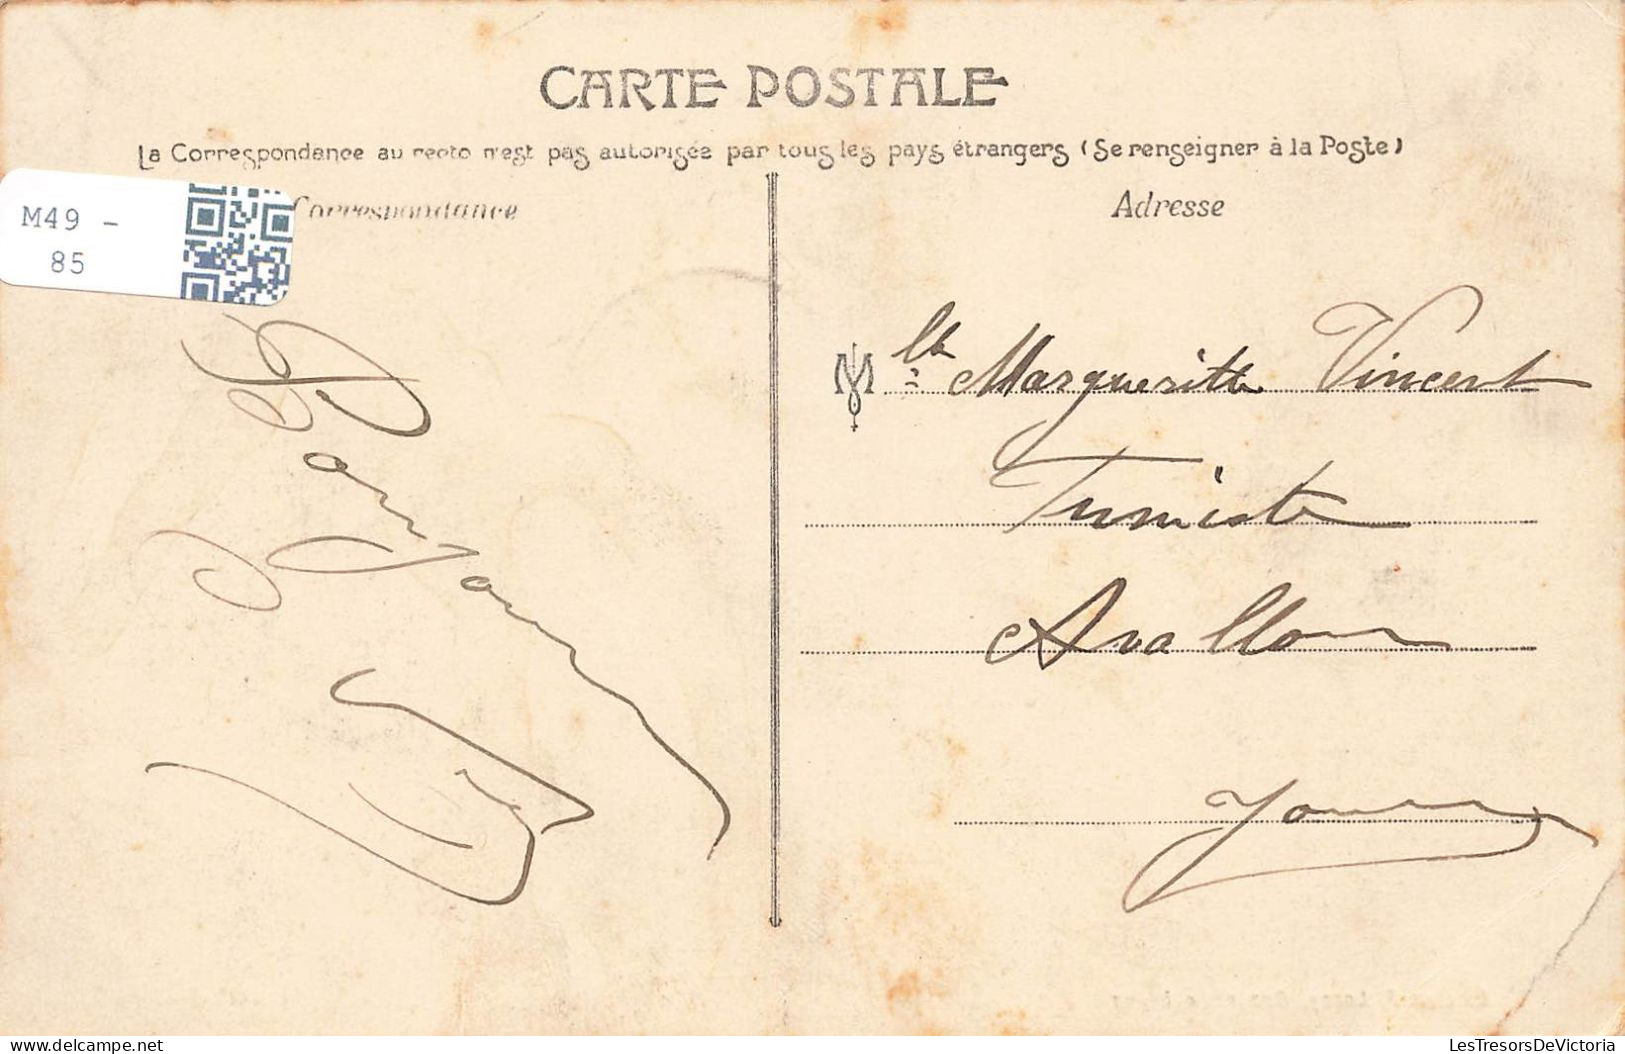 CARTE POSTALE
La Correspondance au recto n'est pas autorisée par tous les pays étrangers (Se renseigner à la Poste)
M49 -
85
Correspondance
Adresse
Mlle Marguerite Vincent
Avallon
Yonne
Bonjour
LesTresorsDeVictoria
delcampe.net